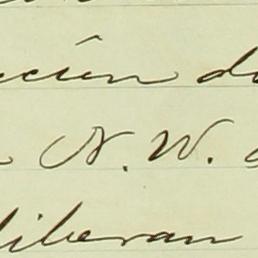 ción d
N. W.
liberan